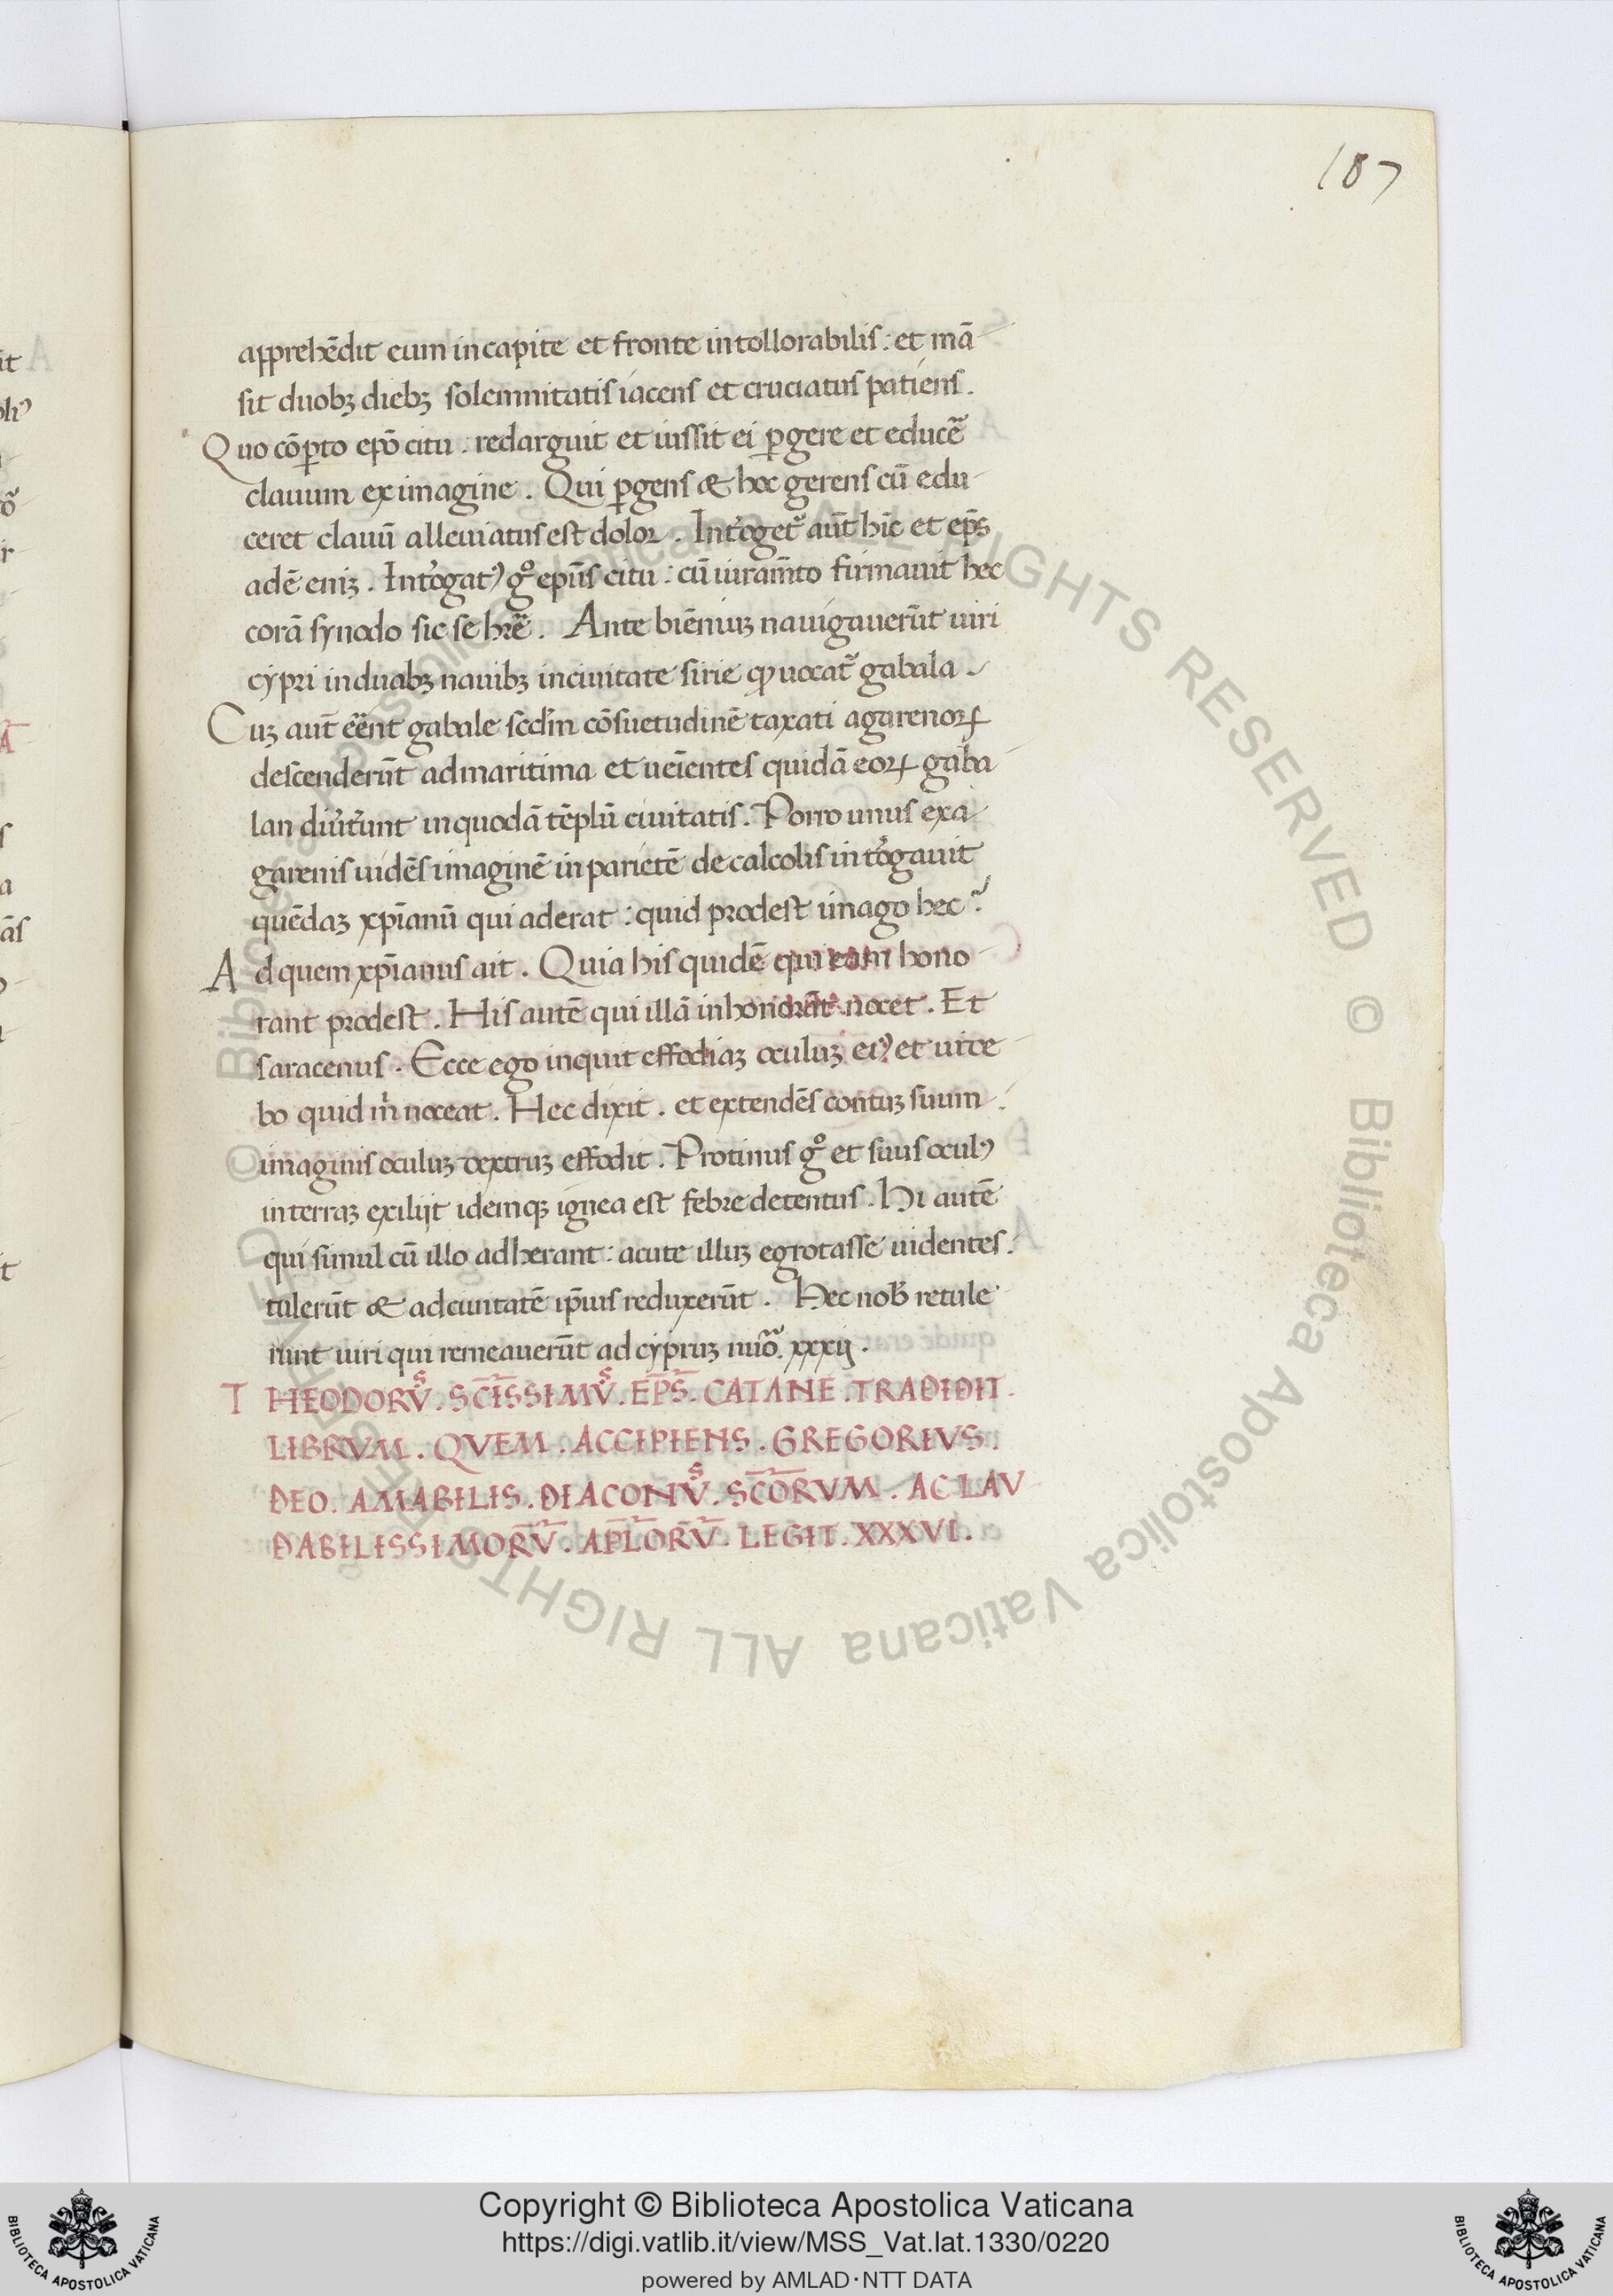 187
apprehēdit eum in capite et fronte intollorabilis: et mā
sit duobꝫ diebꝫ solemnitatis iacens et cruciatus patiens.
Quo cōꝑto epō citu: redarguit et iussit ei ꝑgere et educē
clauum ex imagine. Qui ꝑgens & hoc gerens cū edu
ceret clauū alleuiatus est dolor. Int̓ogeẗ aūt hīc et ep̄s
adē eniꝫ. Int̓ogatꝰ gͦ epūs citu: cū iuram̄to firmauit hec
corā synodo sic se hr̄e. Ante biēniuꝫ nauigauerūt uiri
cypri in duabꝫ nauibꝫ in ciuitate sirie ꝙ uocat᷑ gabala
Cuꝫ aut̄ eēnt gabale scd̄m cōsuetudinē taxati agarenoꝝ
descenderūt ad maritima et ueīentes quidā eoꝝ gaba
lan diu̓t̓unt in quodā tēplū ciuitatis. Porro unus ex a
garenis uidēs imaginē in parietē de calcolis int̓ogauit
quēdaꝫ xp̄ianū qui aderat: quid prodest imago hec?
Ad quem xp̄ianus ait. Quia his quidē qui eam hono
rant prodest. His autē qui illā inhonorāt nocet. Et
saracenus. Ecce ego inquit effodiaꝫ oculuꝫ eiꝰ et uide
bo quid m̓ noceat. Hec dixit. et extendēs contuꝫ suum
imaginis oculuꝫ dextruꝫ effodit. Protinus gͦ et suus oculꝰ
in terraꝫ exilijt idemqꝫ ignea est febre detentus. Hi autē
qui simul cū illo adherant: acute illuꝫ egrotasse uidentes.
tulerūt & ad ciuitatē ip̄ius reduxerūt. Hec nob̄ retule
runt uiri qui remeauerūt ad cypruꝫ nuō. xxxij.
THEODORV̊S. SC̄ISSIMV̊S. EP̄S. CATANE. TRADIDIT.
LIBRVM. QVEM. ACCIPIENS. GREGORIVS.
DEO. AMABILIS. DIACONV̊S. SC̄ORVM. AC LAV
DABILISSIMORV̄. AP̄LORV̄. LEGIT. XXXVI.
© Biblioteca Apostolica Vaticana ALL RIGHTS RESERVED
© Biblioteca Apostolica Vaticana ALL RIGHTS RESERVED
BIBLIOTECA APOSTOLICA VATICANA
Copyright © Biblioteca Apostolica Vaticana
https://digi.vatlib.it/view/MSS_Vat.lat.1330/0220
powered by AMLAD·NTT DATA
BIBLIOTECA APOSTOLICA VATICANA